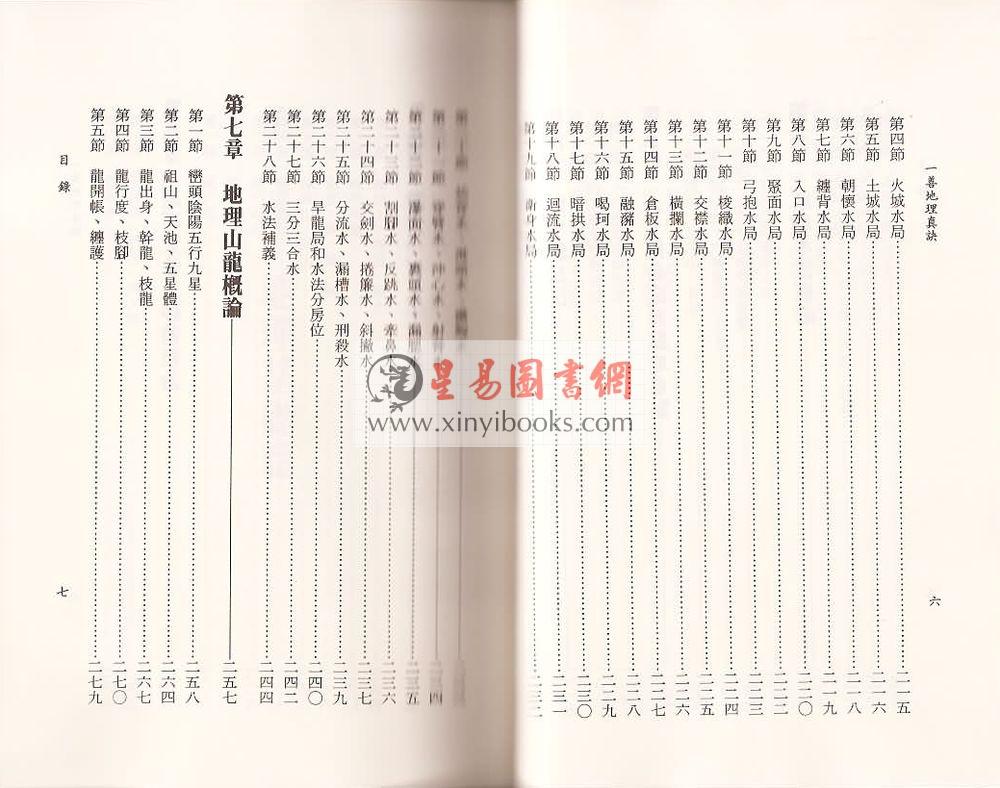 一善地理真訣
第四節 火城水局……二一五
第五節 土城水局……二一六
第六節 朝懷水局……二一八
第七節 纏背水局……二一九
第八節 入口水局……二二〇
第九節 聚面水局……二二二
第十節 弓抱水局……二二三
第十一節 梭織水局……二二四
第十二節 交襟水局……二二五
第十三節 橫攔水局……二二六
第十四節 倉板水局……二二七
第十五節 融瀦水局……二二八
第十六節 喝珂水局……二二九
第十七節 暗拱水局……二三〇
第十八節 迴流水局……二三一
第十九節 衛身水局……二三二
六
第二十三節 割腳水、反跳水、牽鼻水……二三六
第二十四節 交劍水、捲簾水、斜撇水……二三七
第二十五節 分流水、漏槽水、刑殺水……二三九
第二十六節 旱龍局和水法分房位……二四〇
第二十七節 三分三合水……二四二
第二十八節 水法補義……二四四
第七章 地理山龍概論……二五七
第一節 巒頭陰陽五行九星……二五八
第二節 祖山、天池、五星體……二六四
第三節 龍出身、幹龍、枝龍……二六七
第四節 龍行度、枝腳……二七〇
第五節 龍開帳、纏護……二七九
目錄
七
星易圖書網
www.xinyibooks.com